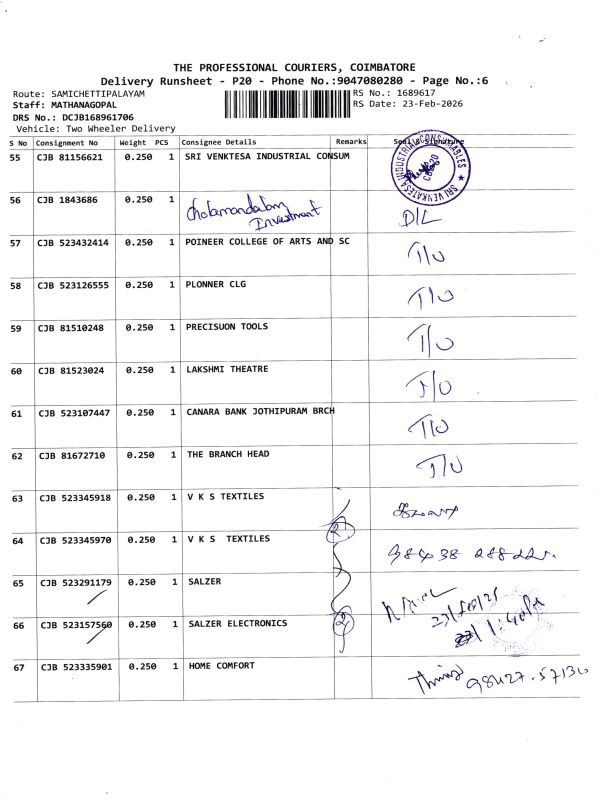 THE PROFESSIONAL COURIERS, COIMBATORE
Delivery Runsheet - P20 - Phone No.:9047080280 - Page No.:6
Route: SAMICHETTIPALAYAM RS No.: 1689617
Staff: MATHANAGOPAL RS Date: 23-Feb-2026
DRS No.: DCJB168961706
Vehicle: Two Wheeler Delivery
S No Consignment No Weight PCS Consignee Details Remarks Seal & Signature
55 CJB 81156621 0.250 1 SRI VENKTESA INDUSTRIAL CONSUM
SRI VENKATESA INDUSTRIAL CONSUMABLES
56 CJB 1843686 0.250 1 Cholamandalam Investment D/L
57 CJB 523432414 0.250 1 POINEER COLLEGE OF ARTS AND SC T/O
58 CJB 523126555 0.250 1 PLONNER CLG T/O
59 CJB 81510248 0.250 1 PRECISUON TOOLS T/O
60 CJB 81523024 0.250 1 LAKSHMI THEATRE T/O
61 CJB 523107447 0.250 1 CANARA BANK JOTHIPURAM BRCH T/O
62 CJB 81672710 0.250 1 THE BRANCH HEAD T/O
63 CJB 523345918 0.250 1 V K S TEXTILES
64 CJB 523345970 0.250 1 V K S TEXTILES 2
65 CJB 523291179 0.250 1 SALZER
66 CJB 523157560 0.250 1 SALZER ELECTRONICS 2
67 CJB 523335901 0.250 1 HOME COMFORT 98427.57130